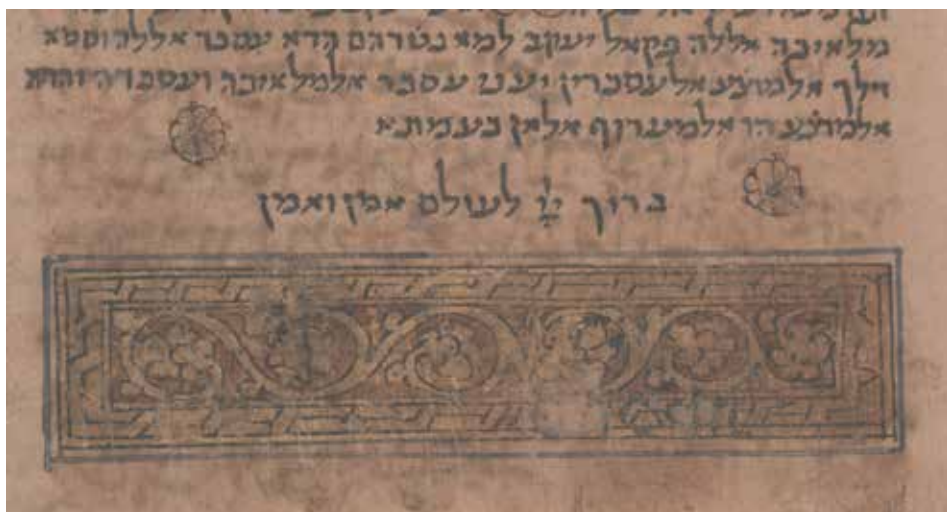 מלאיכה אללה פקאל יעקב למא נטרהם הדא עסכר אללה וסמא
דלך אלמוצׄע אלעסכרין יעני עסכר אלמלאיכה ועסכרה והדא
אלמוצׄע הו אלמערוף אלאן בעמתא
ברוך ייי לעולם אמן ואמן